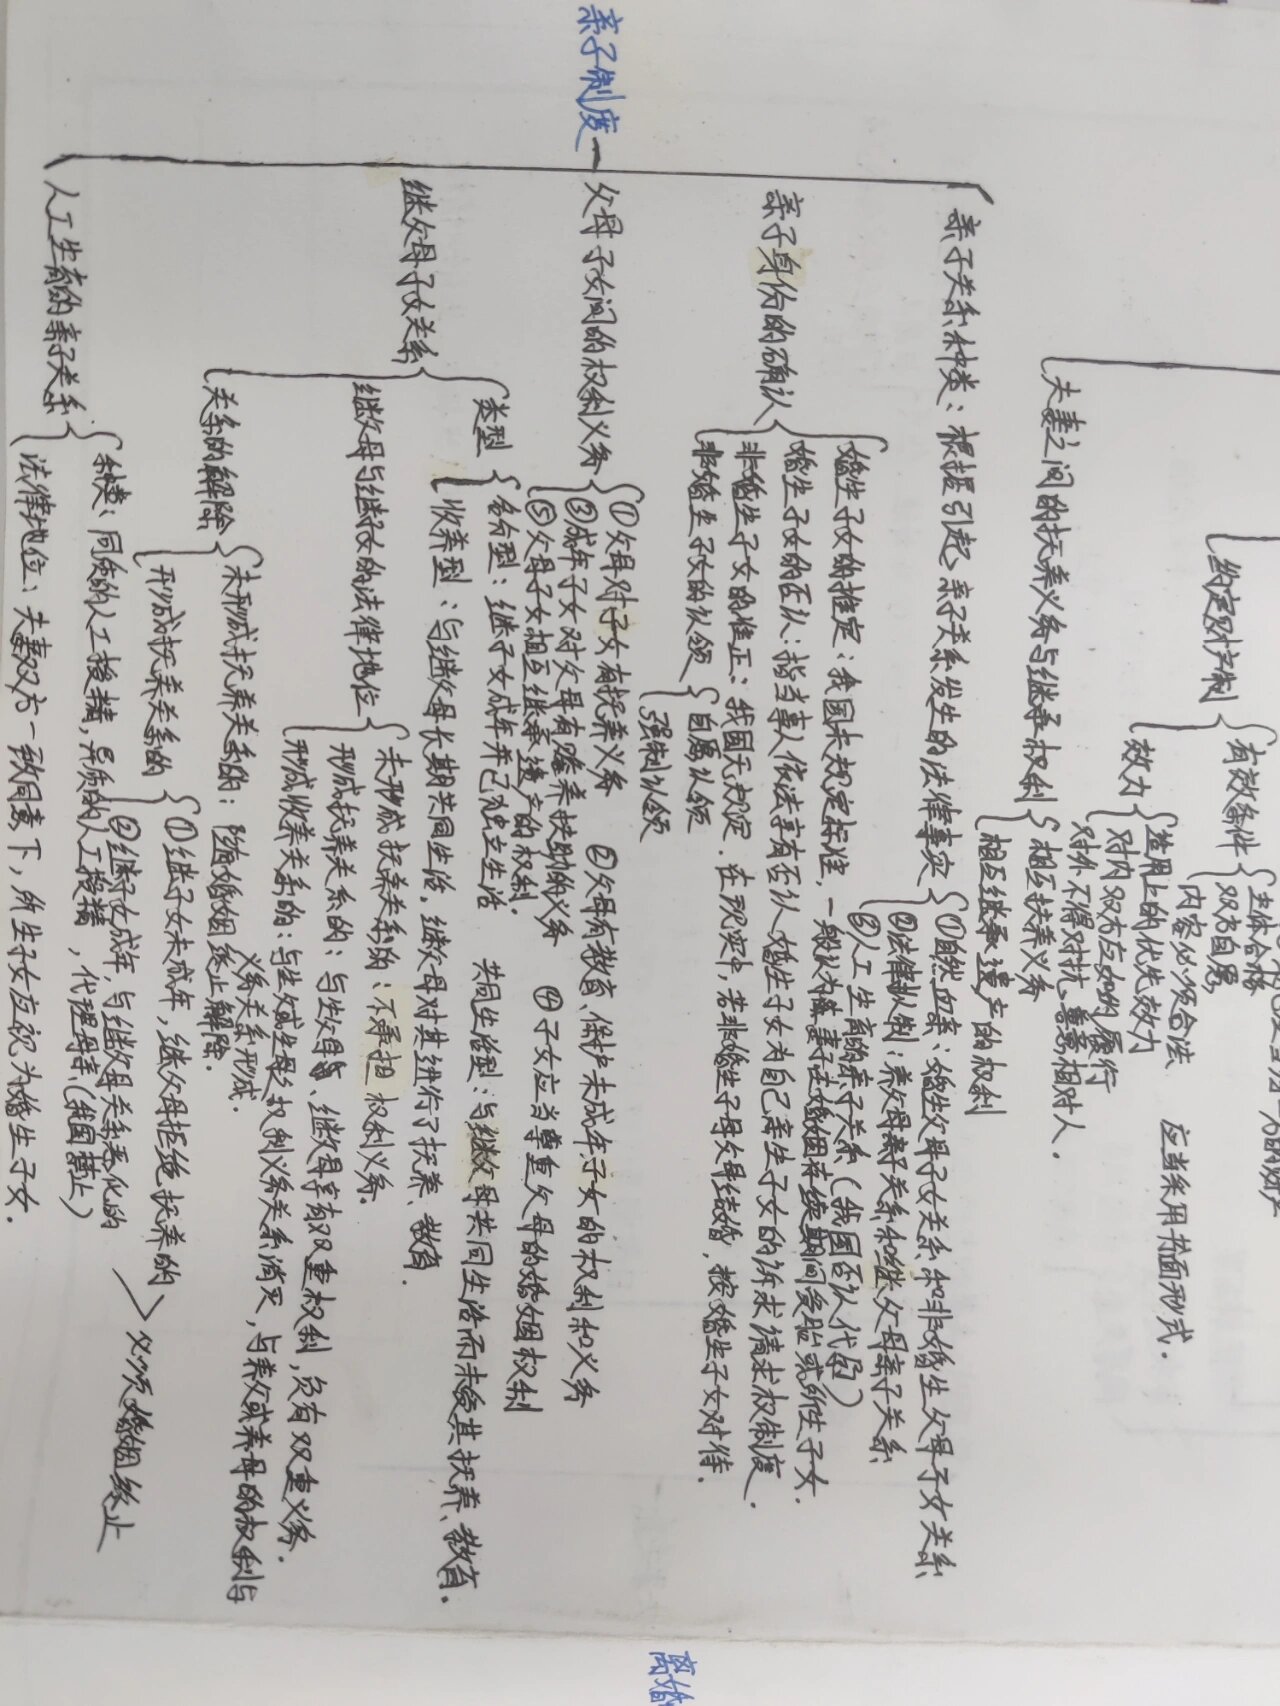 约定财产制
有效条件
主体合格
双方自愿
内容必须合法
应当采用书面形式.
效力
适用上的优先效力
对内双方应如约履行
对外不得对抗善意相对人.
夫妻之间的扶养义务与继承权利
相互扶养义务
相互继承遗产的权利
亲子制度
亲子关系种类:根据引起亲子关系发生的法律事实
①自然血亲:婚生父母子女关系和非婚生父母子女关系
②法律拟制:养父母亲子关系和继父母亲子关系
③人工生育的亲子关系(我国否认代孕)
亲子身份的确认
婚生子女的推定:我国未规定标准,一般认为是妻子在婚姻存续期间受胎或所生子女.
婚生子女的否认:指当事人依法享有否认婚生子女为自己亲生子女的诉求请求权制度.
非婚生子女的准正:我国无规定.在现实中,若非婚生子母父母结婚,按婚生子女对待.
非婚生子女的认领
自愿认领
强制认领
父母子女间的权利义务
①父母对子女有抚养义务 ②父母有教育、保护未成年子女的权利和义务
③成年子女对父母有赡养扶助的义务 ④子女应当尊重父母的婚姻权利
⑤父母子女相互继承遗产的权利.
继父母子女关系
类型
名分型:继子女成年并已独立生活
共同生活型:与继父母共同生活而未受其抚养、教育.
收养型:与继父母长期共同生活,继父母对其进行了抚养、教育.
继父母与继子女的法律地位
未形成抚养关系的:不承担权利义务.
形成抚养关系的:与生父母、继父母享有双重权利,负有双重义务.
形成收养关系的:与生父或生母之权利义务关系消灭,与养父或养母的权利与
义务关系形成.
关系的解除
未形成抚养关系的:随婚姻终止解除.
形成抚养关系的
①继子女未成年,继父母拒绝抚养的
②继子女成年,与继父母关系恶化的
必须婚姻终止
人工生育的亲子关系
种类:同质的人工授精,异质的人工授精,代理母亲(我国禁止)
法律地位:夫妻双方一致同意下,所生子女应视为婚生子女.
离婚